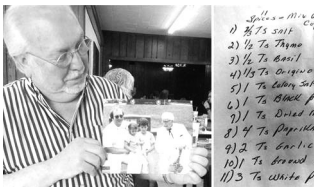 11 Spices = Mix W
1) 2/3 Ts Salt
2) 1/2 Ts Thyme
3) 1/2 Ts Basil
4) 1/3 Ts Origino
5) 1 Ts Celery Sal
6) 1 Ts Black P
7) 1 Ts Dried M
8) 4 Ts Paprika
9) 2 Ts Garlic
10) 1 Ts Ground
11) 3 Ts White P